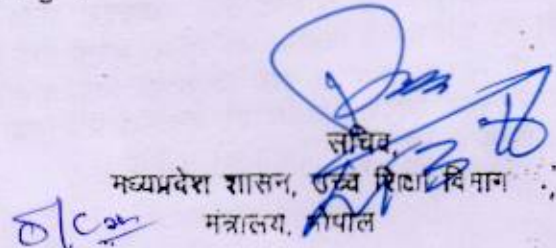 सचिव,
मध्यप्रदेश शासन, उच्च शिक्षा विभाग
मंत्रालय, भोपाल